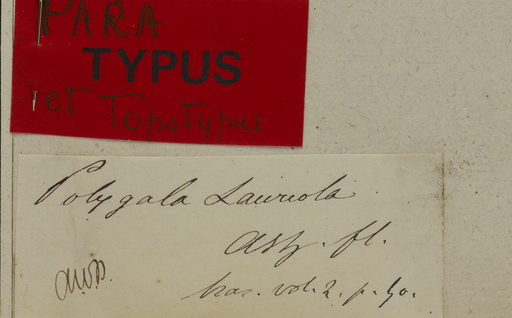 PARA
TYPUS
et Topotypus
Polygala Laureola
fl.
bras. vol. 2. p.